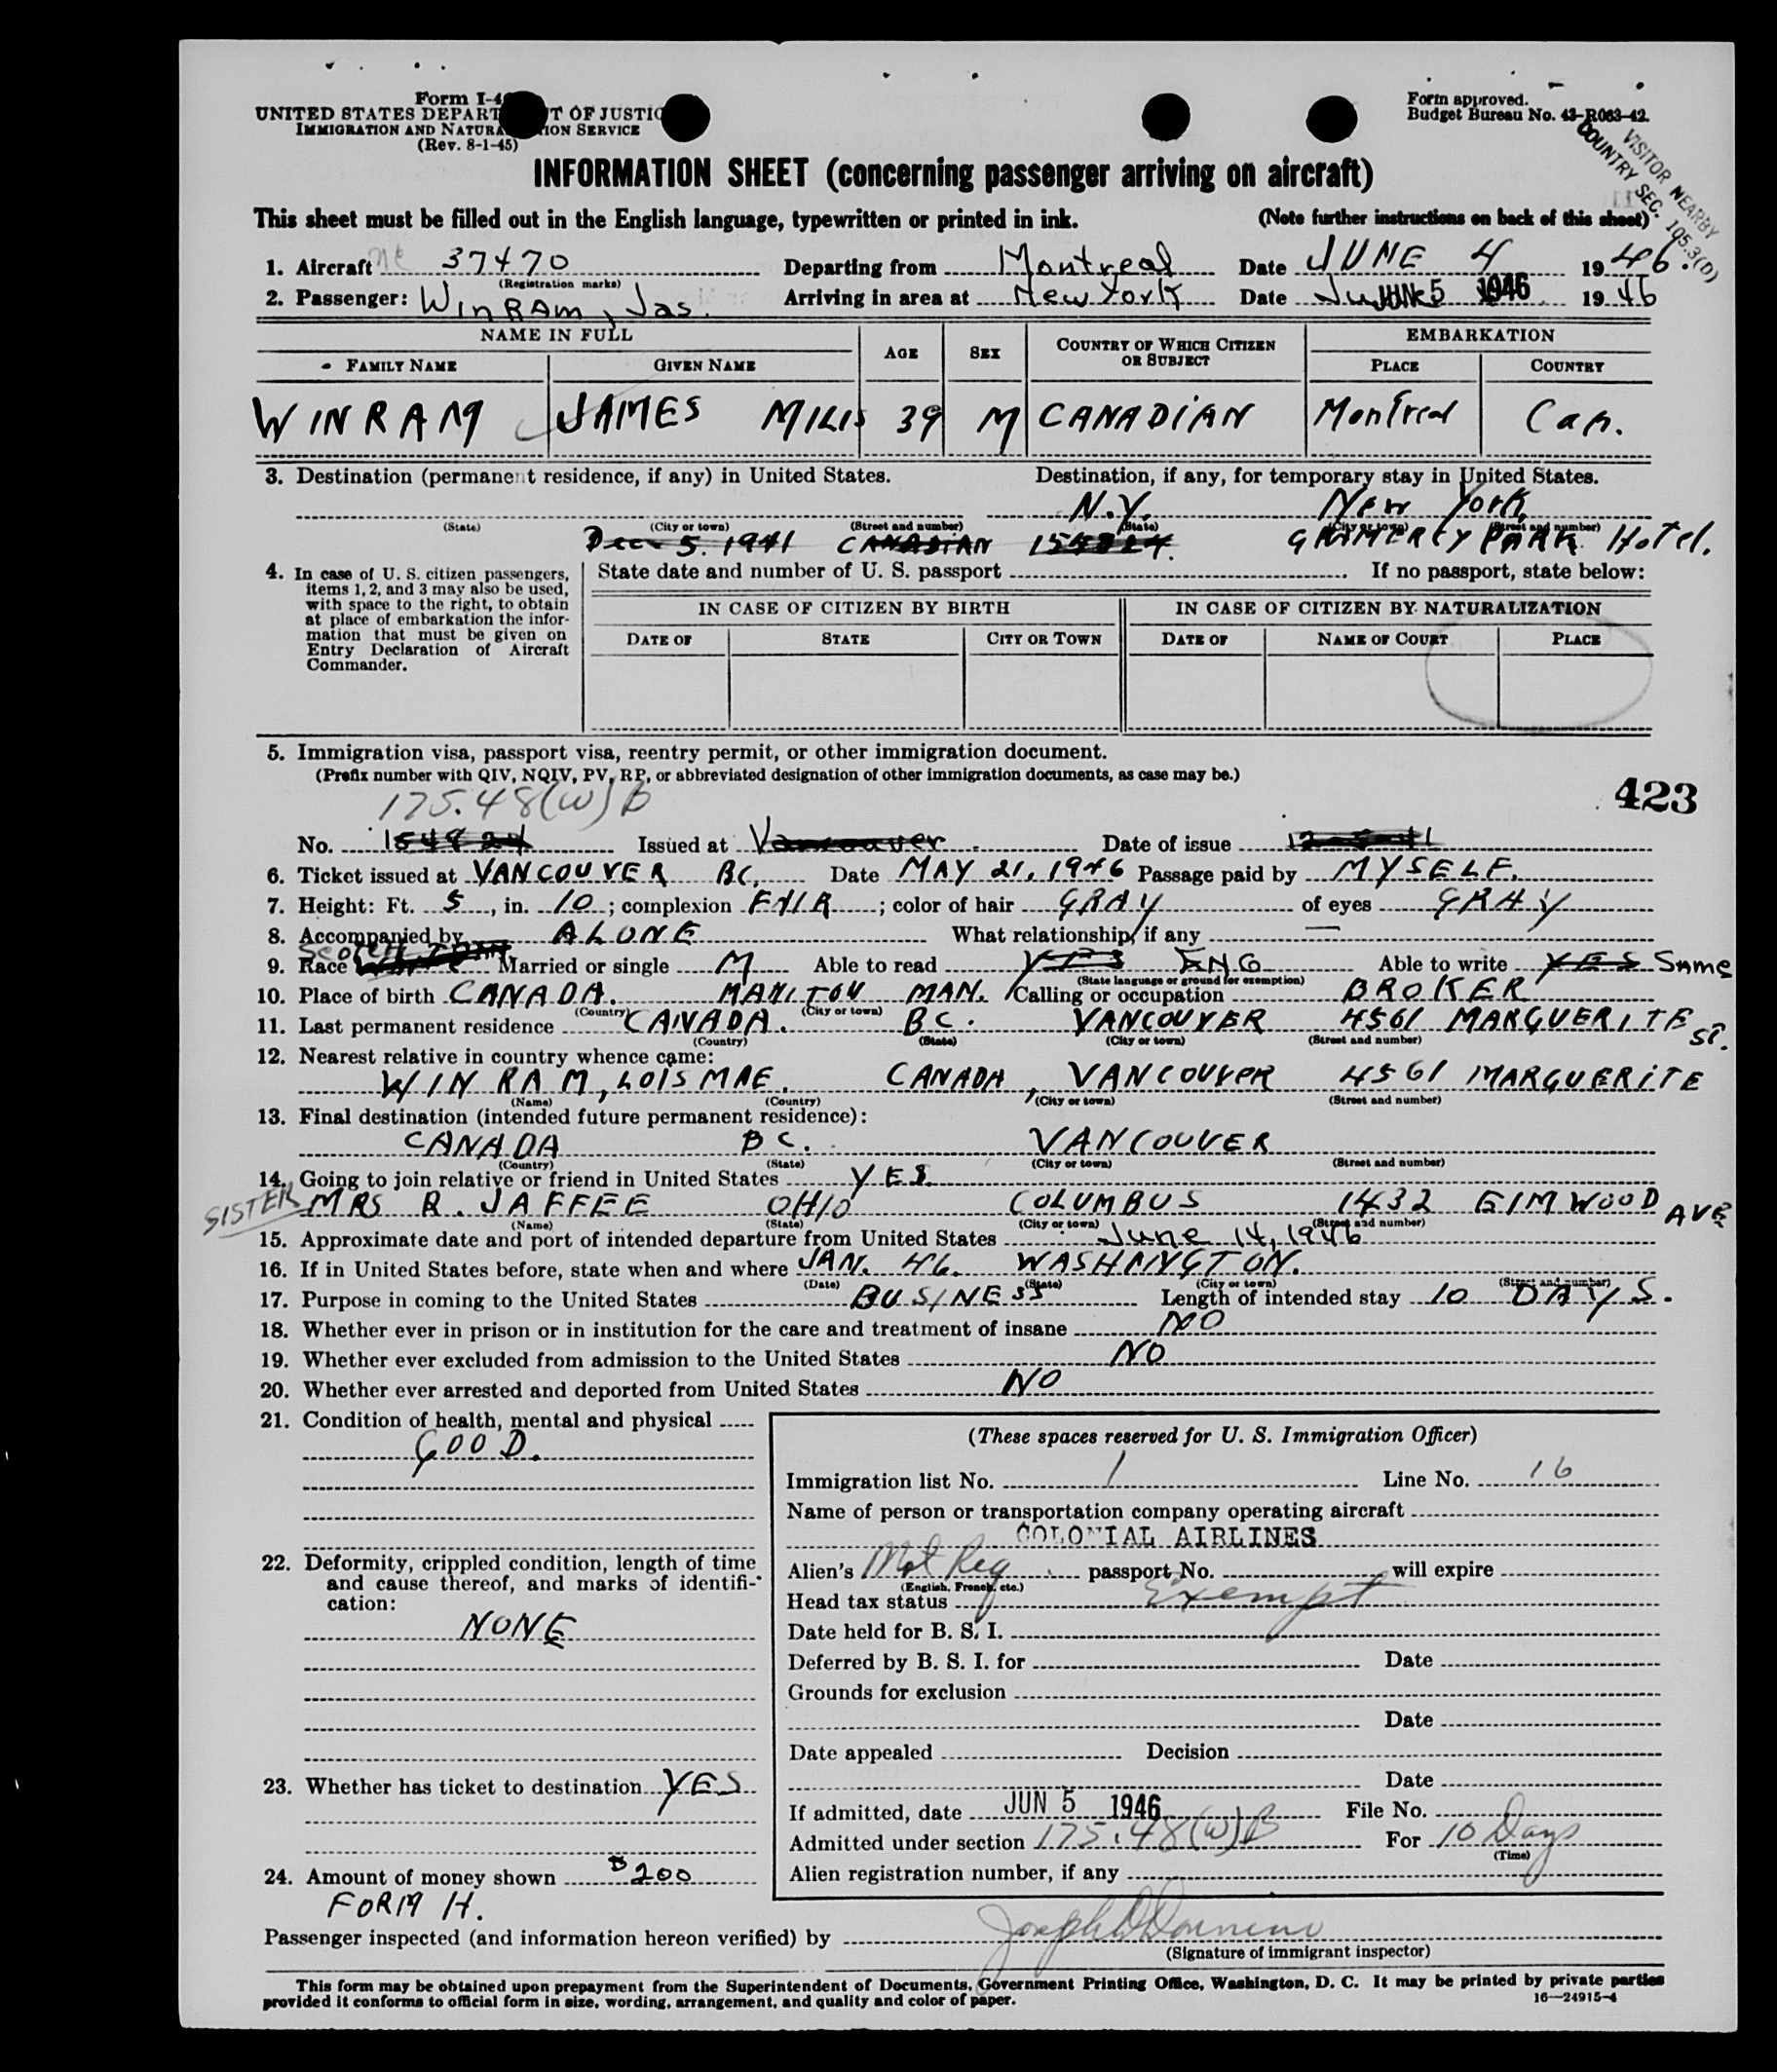 Form I-4
UNITED STATES DEPART T OF JUSTIC
IMMIGRATION AND NATURA ION SERVICE
(Rev. 8-1-45)
Form approved.
Budget Bureau No. 43-R063-42.
VISITOR NEARBY
COUNTRY SEC. 105.3(D)
INFORMATION SHEET (concerning passenger arriving on aircraft)
This sheet must be filled out in the English language, typewritten or printed in ink. (Note further instructions on back of this sheet)
1. Aircraft 37470 Departing from Montreal Date JUNE 4 1946.
(Registration marks)
2. Passenger: WinRAm, Jas. Arriving in area at New York Date JUN 5 1946 1946
NAME IN FULL AGE SEX COUNTRY OF WHICH CITIZEN OR SUBJECT EMBARKATION
FAMILY NAME GIVEN NAME PLACE COUNTRY
WINRAM JAMES MILIS 39 M CANADIAN Montreal Can.
3. Destination (permanent residence, if any) in United States. Destination, if any, for temporary stay in United States.
N.Y. New York
(State) (City or town) (Street and number) (State) (City or town) (Street and number)
Dec 5. 1941 CANADIAN 154824. GRAMERCY PARK Hotel.
4. In case of U. S. citizen passengers, items 1, 2, and 3 may also be used, with space to the right, to obtain at place of embarkation the information that must be given on Entry Declaration of Aircraft Commander.
State date and number of U. S. passport . If no passport, state below:
IN CASE OF CITIZEN BY BIRTH IN CASE OF CITIZEN BY NATURALIZATION
DATE OF STATE CITY OR TOWN DATE OF NAME OF COURT PLACE
5. Immigration visa, passport visa, reentry permit, or other immigration document.
(Prefix number with QIV, NQIV, PV, RP, or abbreviated designation of other immigration documents, as case may be.)
423
175.48(W)B
No. 154824 Issued at Vancouver Date of issue 12-5-41
6. Ticket issued at VANCOUVER BC. Date MAY 21, 1946 Passage paid by MYSELF.
7. Height: Ft. 5, in. 10; complexion FAIR; color of hair GRAY of eyes GRAY
8. Accompanied by ALONE What relationship, if any —
9. Race SCOTCH Married or single M Able to read YES ENG Able to write YES SAME
(State language or ground for exemption)
10. Place of birth CANADA. MANITOU MAN. Calling or occupation BROKER
(Country) (City or town)
11. Last permanent residence CANADA. BC. VANCOUVER 4561 MARGUERITE ST.
(Country) (State) (City or town) (Street and number)
12. Nearest relative in country whence came:
WINRAM, LOIS MAE. CANADA, VANCOUVER 4561 MARGUERITE
(Name) (Country) (City or town) (Street and number)
13. Final destination (intended future permanent residence):
CANADA BC. VANCOUVER
(Country) (State) (City or town) (Street and number)
14. Going to join relative or friend in United States YES.
SISTER MRS R. JAFFEE OHIO COLUMBUS 1432 ElMWOOD AVE
(Name) (State) (City or town) (Street and number)
15. Approximate date and port of intended departure from United States June 14, 1946
16. If in United States before, state when and where JAN. 46. WASHINGTON.
(Date) (State) (City or town) (Street and number)
17. Purpose in coming to the United States BUSINESS Length of intended stay 10 DAYS.
18. Whether ever in prison or in institution for the care and treatment of insane NO
19. Whether ever excluded from admission to the United States NO
20. Whether ever arrested and deported from United States NO
21. Condition of health, mental and physical
GOOD.
22. Deformity, crippled condition, length of time and cause thereof, and marks of identification:
NONE
23. Whether has ticket to destination YES
24. Amount of money shown $200
FORM H.
(These spaces reserved for U. S. Immigration Officer)
Immigration list No. 1 Line No. 16
Name of person or transportation company operating aircraft
COLONIAL AIRLINES
Alien's Reg passport No. will expire
(English, French, etc.)
Head tax status Exempt
Date held for B. S. I.
Deferred by B. S. I. for Date
Grounds for exclusion
Date
Date appealed Decision
Date
If admitted, date JUN 5 1946 File No.
Admitted under section 175.48(W)B For 10 Days
(Time)
Alien registration number, if any
Passenger inspected (and information hereon verified) by Joseph
(Signature of immigrant inspector)
This form may be obtained upon prepayment from the Superintendent of Documents, Government Printing Office, Washington, D. C. It may be printed by private parties
provided it conforms to official form in size, wording, arrangement, and quality and color of paper.
16—24915-4